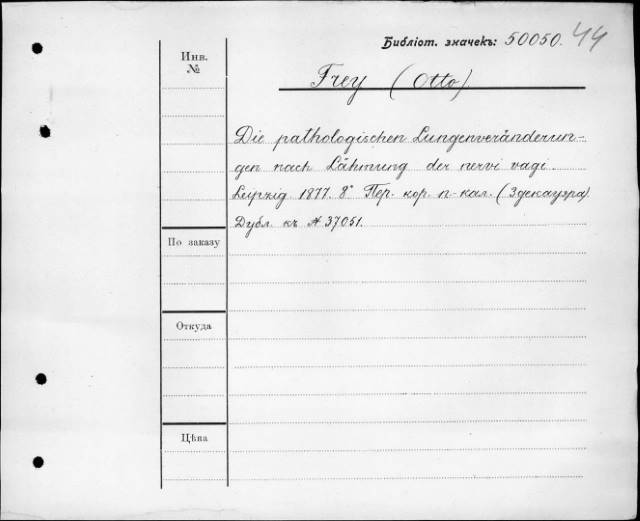 Библіот. значекъ: 50050. 44
Инв.
№
Frey (Otto)
Die pathologischen Lungenveränderun-
gen nach Lähmung der nervi vagi.
Leipzig 1877. 8° Пер. кор. п-кал. (Здекауэра).
Дубл. къ А 37051.
По заказу
Откуда
Цѣна